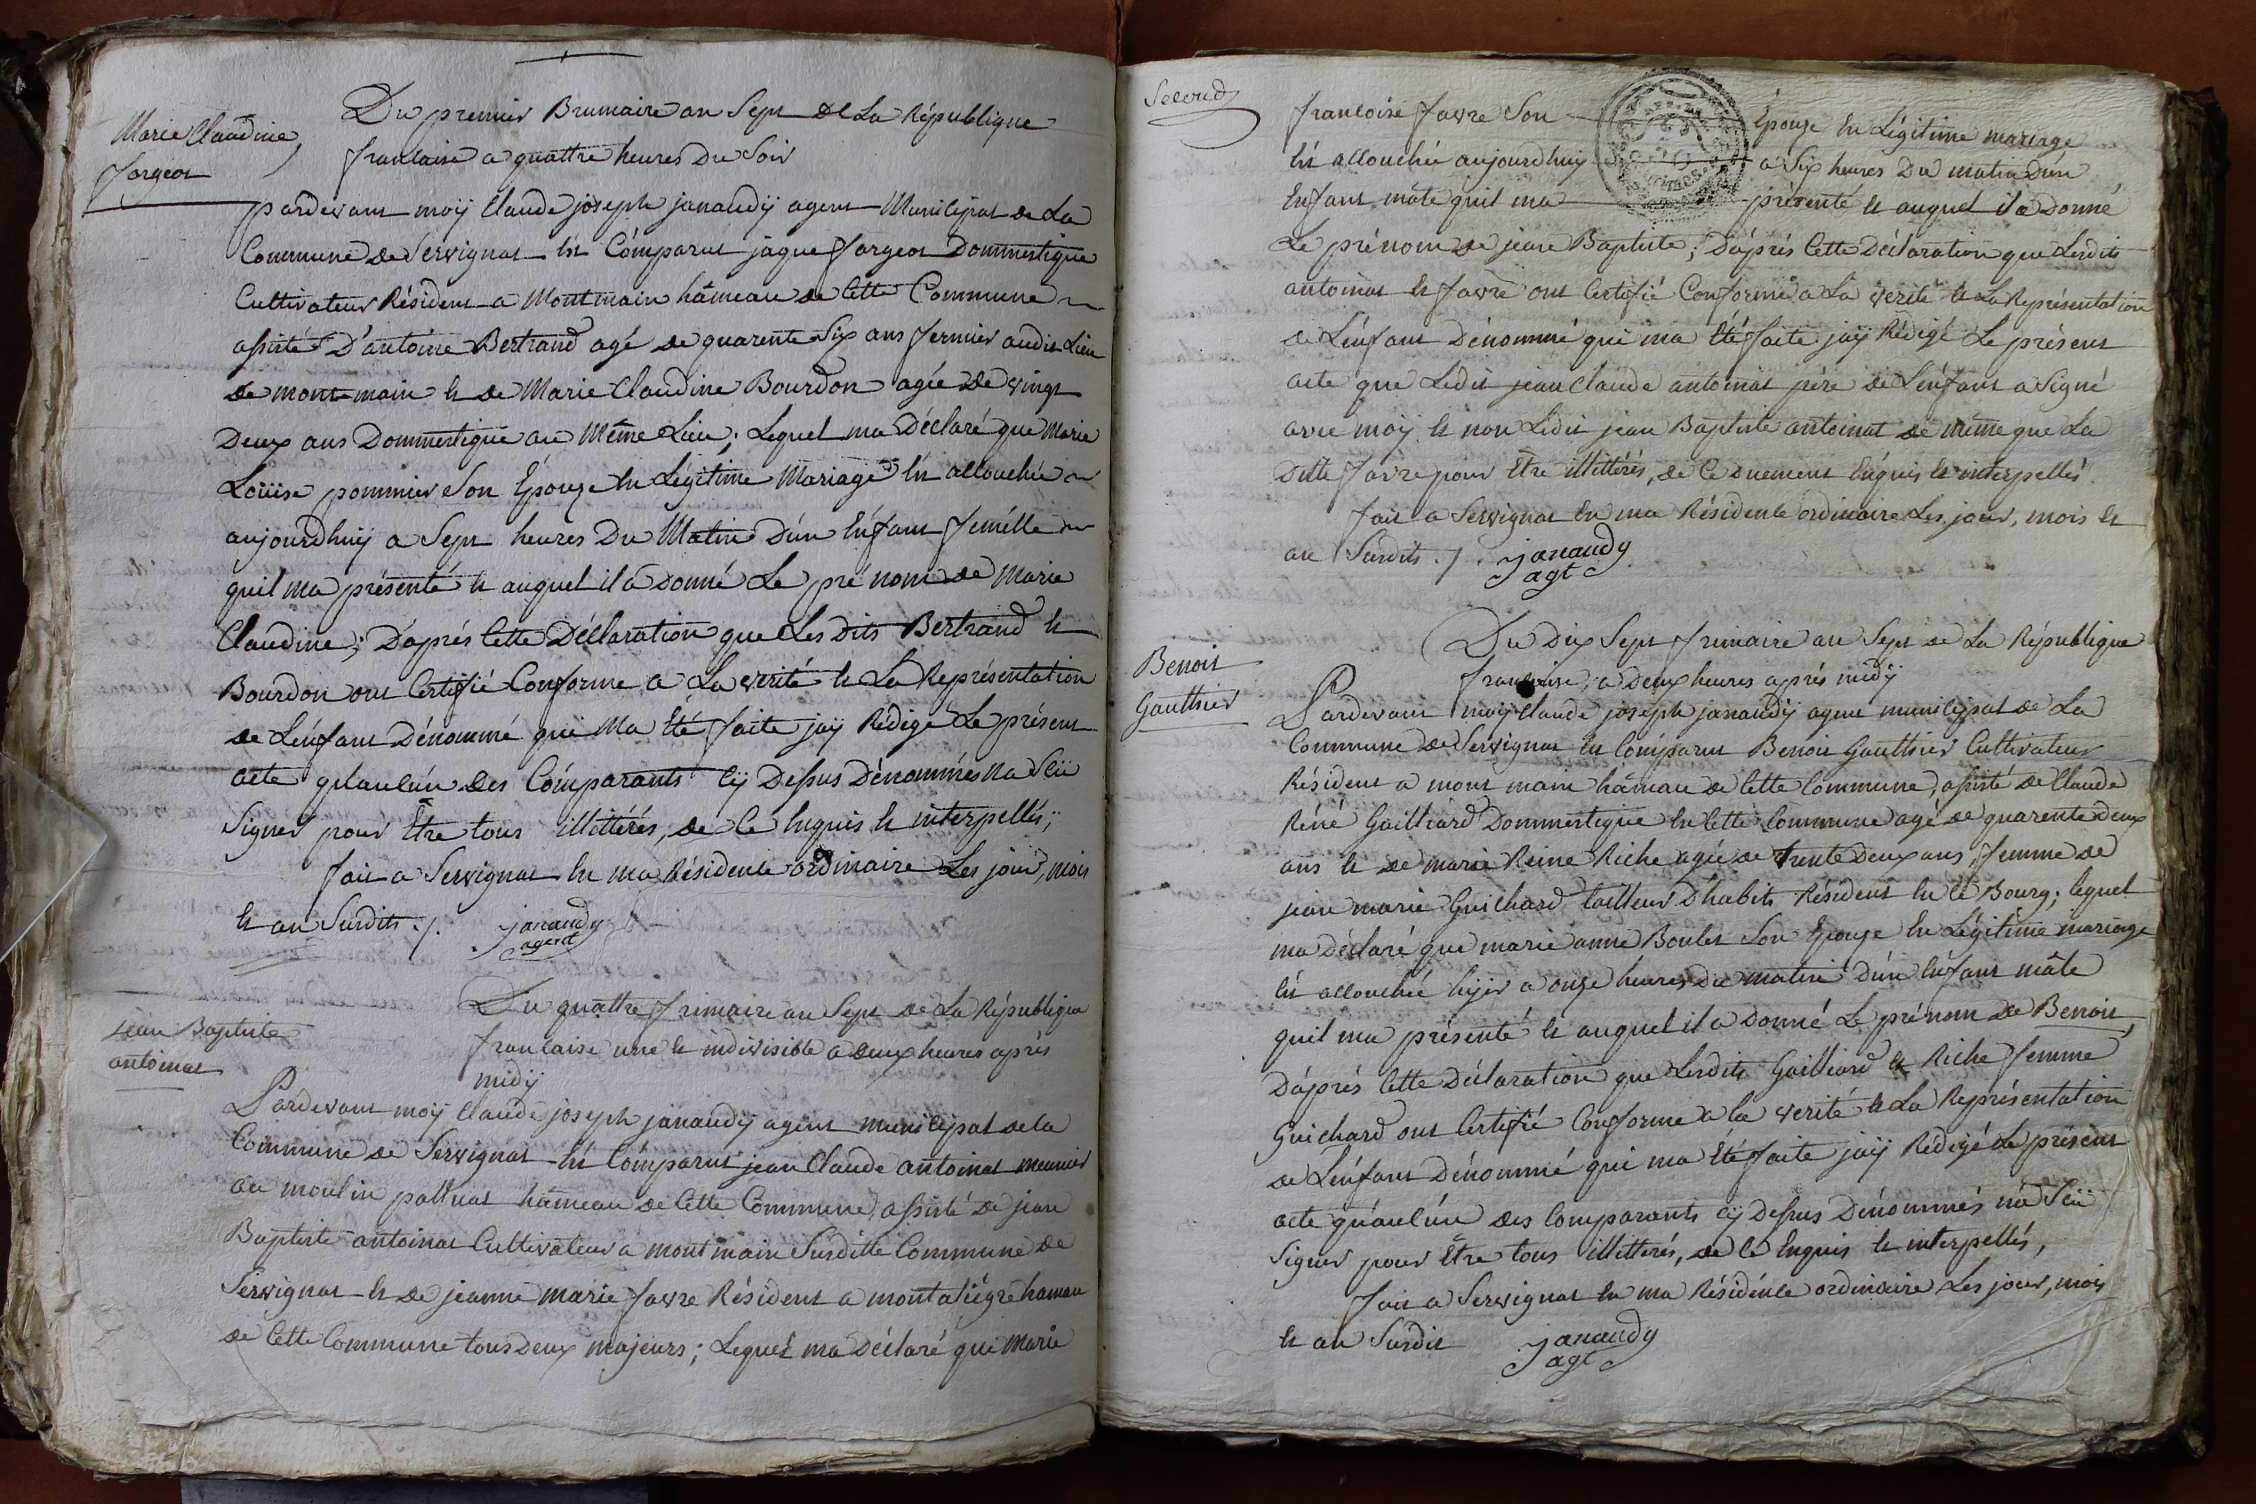 Marie Claudine
forgeot
Du premier Brumaire an Sept de La République
francaise a quattre heures Du Soir
pardevant moÿ Claude joseph janaudÿ agent Municipal de La
Commune de Servignat Est Comparut jaque forgeot Dommestique
Cultivateur Résident a Montmain hâmeau de Cette Commune
assisté D'antoine Bertrand agé de quarente Six ans fermier audit Lieu
de montmain et de Marie Claudine Bourdon agée de vingt
Deux ans Dommestique au Même Lieu; Lequel ma Déclaré que Marie
Loüise pommier Son Epouze En Légitime Mariage Est allouchée
aujourdhuÿ a Sept heures Du Matin D'un Enfant femélle
quil ma présenté et auquel il a Donné Le prénom de Marie
Claudine; D'aprés Cette Déclaration que Les Dits Bertrand et
Bourdon ont Certifié Conforme a La verité et La Représentation
de L'énfant Dénommé qui Ma Eté faite jaÿ Rédigé Le présent
acte qu'aucun Des Comparants Cÿ Dessus Dénommés Na Sçü
Signer pour Etre tous illitterés, de Ce Enquis et interpellés;
fait a Servignat En ma Résidence ordinaire Les jour, mois
Et an Susdits ./.
janaudy
agent
jean Baptiste
antoinat
Du quattre frimaire an Sept de La République
francaise une et indivisible a Deux heures aprés
midÿ
Pardevant moÿ Claude joseph janaudÿ agent municipal de la
Commune de Servignat Est Comparut jean Claude antoinat meunier
au moulin palluat hâmeau de Cette Commune, assisté de jean
Baptiste antoinat Cultivateur a montmain Susditte Commune de
Servignat et de jeanne marie favre Résident a montaliégre hameau
de Cette Commune tous Deux majeurs; Lequel ma Déclaré que Marie
Second
francoise favre Son Epouze En Légitime mariage
Est allouchée aujourdhuÿ a Six heures Du matin D'un
Enfant mâle quil ma présenté et auquel il a Donné
Le prénom de jean Baptiste; D'aprés Cette Déclaration que Lesdits
antoinat et favre ont Certifié Conforme a La verité et La Représentation
de L'énfant Dénommé qui ma Eté faite jaÿ Rédigé Le présent
acte que Ledit jean Claude antoinat pére de L'énfant a Signé
avec moÿ et non Ledit jean Baptiste antoinat de même que La
Ditte favre pour Etre illitterés, de Ce Duement Enquis et interpellés.
fait a Servignat En ma Résidence ordinaire Les jour, mois et
an Susdits ./.
janaudy
agt
Benoit
Gauthier
Du Dix Sept frimaire an Sept de La République
francaise, a Deux heures aprés midÿ
Pardevant moÿ Claude joseph janaudÿ agent municipal de La
Commune de Servignat Est Comparut Benoit Gauthier Cultivateur
Résident a mont main hâmeau de Cette Commune, assisté de Claude
Réné Gailliard Dommestique En Cette Commune agé de quarente deux
ans et de marie Reine Riche agée de trente Deux ans, femme de
jean marie Guichard tailleur D'habits Résident En Ce Bourg; lequel
ma Déclaré que marie anne Boulet Son Epouze En Légitime mariage
Est allouchée hÿer a onze heures du matin D'un Enfant mâle
quil ma présenté et auquel il a Donné Le prénom de Benoit,
D'aprés Cette Déclaration que Lesdits Gailliard et Riche femme
Guichard ont Certifié Conforme a la verité et La Représentation
de L'énfant Dénommé qui ma Eté faite jaÿ Rédigé Le présent
acte qu'aucun des Comparants cÿ Dessus Dénommés na Sçü
Signer pour Etre tous illitterés, de Ce Enquis et interpellés,
fait a Servignat En ma Résidence ordinaire Les jour, mois
Et an Susdit
janaudy
agt